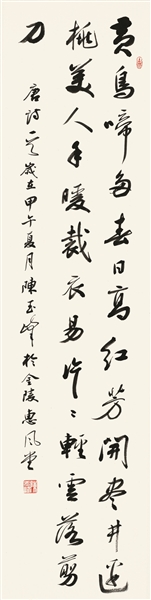 黄鳥啼多春日高紅芳開尽井邊
桃美人手暖裁衣易片〻輕雲落剪
刀
唐詩一首歲在甲午夏月陳玉峰於金陵惠風堂